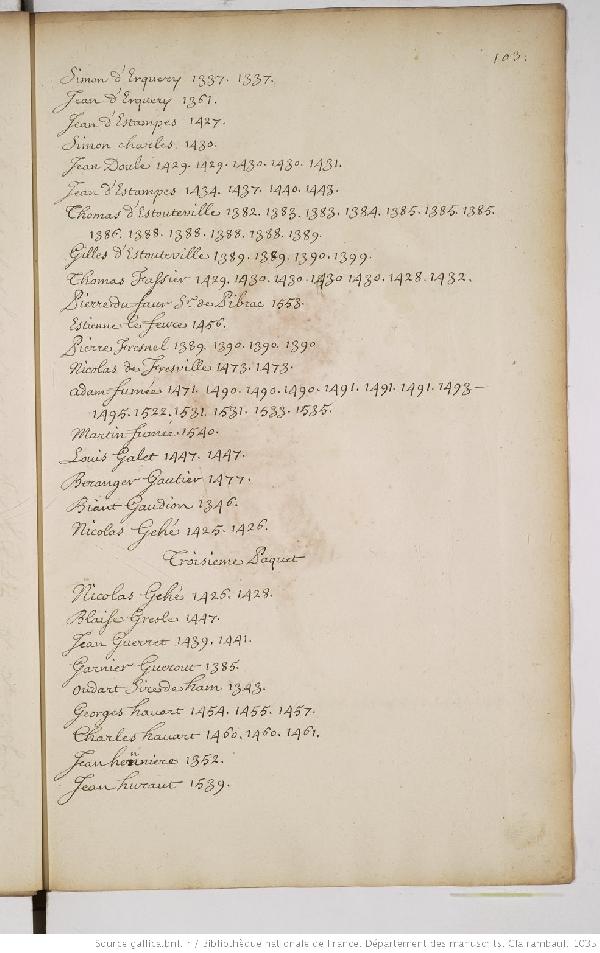 103.
Simon d'Erquery 1337. 1337.
Jean d'Erquery 1361.
Jean d'Estampes 1427.
Simon charles 1430.
Jean Doule 1429. 1429. 1430. 1430. 1431.
Jean d'Estampes 1434. 1437. 1440. 1443.
Thomas d'Estouteville 1382. 1383. 1383. 1384. 1385. 1385. 1385.
1386. 1388. 1388. 1388. 1388. 1389.
Gilles d'Estouteville 1389. 1389. 1390. 1399.
Thomas Fassier 1429. 1430. 1430. 1430. 1430. 1428. 1432.
Pierre du faur Sr. de Pibrac 1553.
Estienne le fevre 1456.
Pierre Fresnel 1389. 1390. 1390. 1390
Nicolas de Fresville 1473. 1473.
Adam fumée 1471. 1490. 1490. 1490. 1491. 1491. 1491. 1493—
1495. 1522. 1531. 1531. 1533. 1535.
Martin fumée 1540.
Louis Galet 1447. 1447.
Beranger Gautier 1477.
Gaudion 1346.
Nicolas Gehé 1425. 1426.
Troisieme Paquet
Nicolas Gehé 1426. 1428.
Blaise Gresle 1447.
Jean Guerret 1439. 1441.
Garnier Guerout 1385.
oudart Sire de ham 1343.
Georges havart 1454. 1455. 1457.
Charles havart 1460. 1460. 1461.
Jean henniere 1352.
Jean huraut 1539.
Source gallica.bnf.fr / Bibliothèque nationale de France. Département des manuscrits. Clairambault 1035